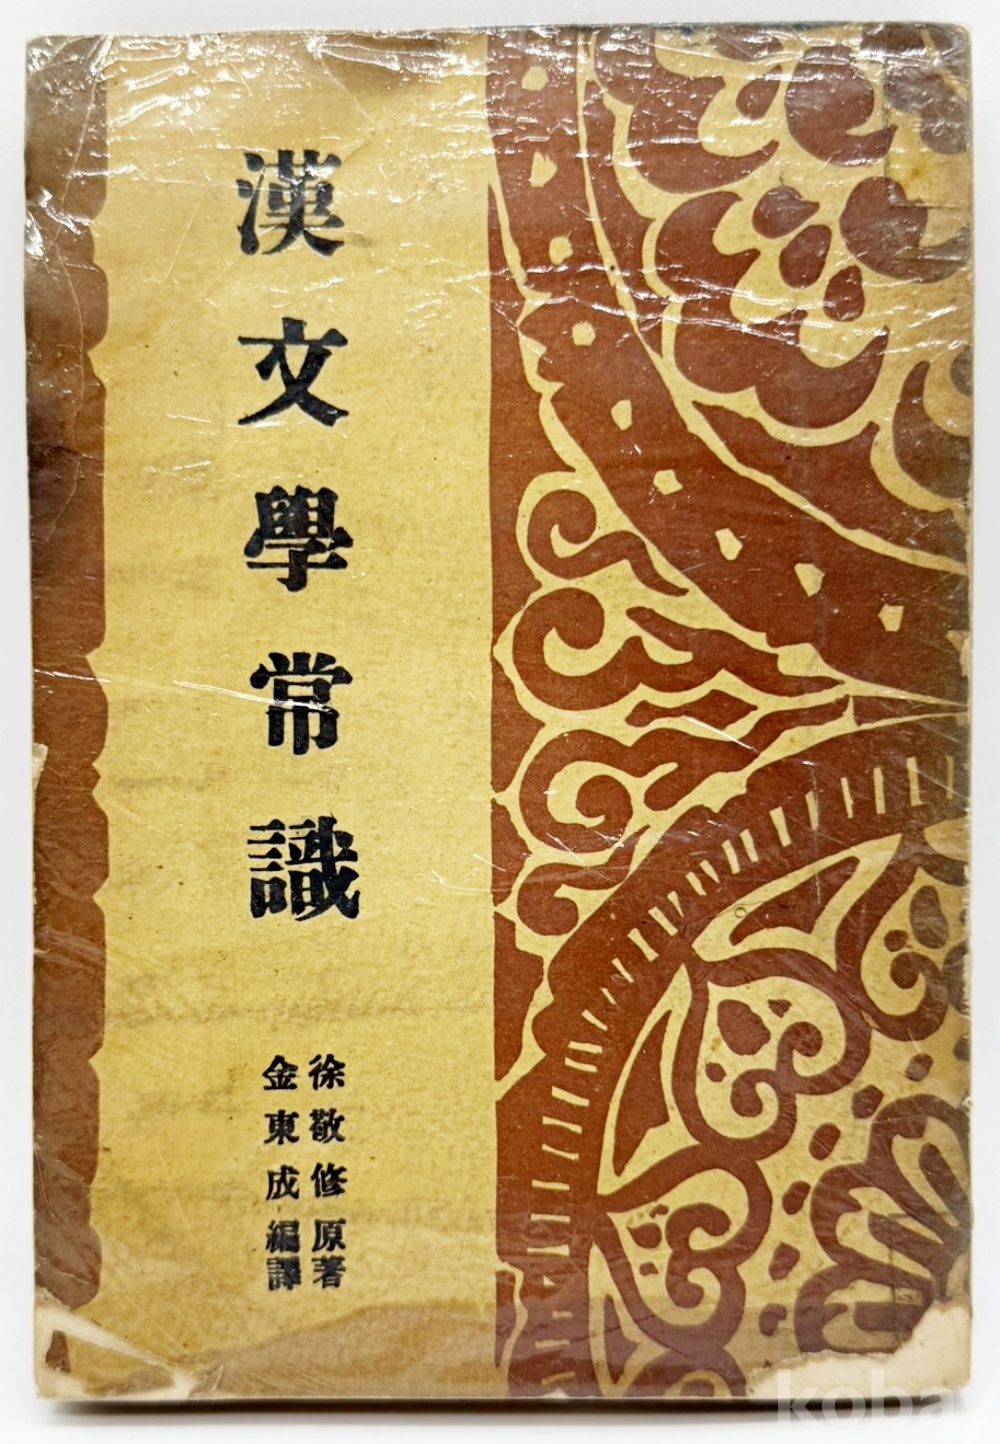 漢文學常識
徐敬修 原著
金東成 編譯
kobay